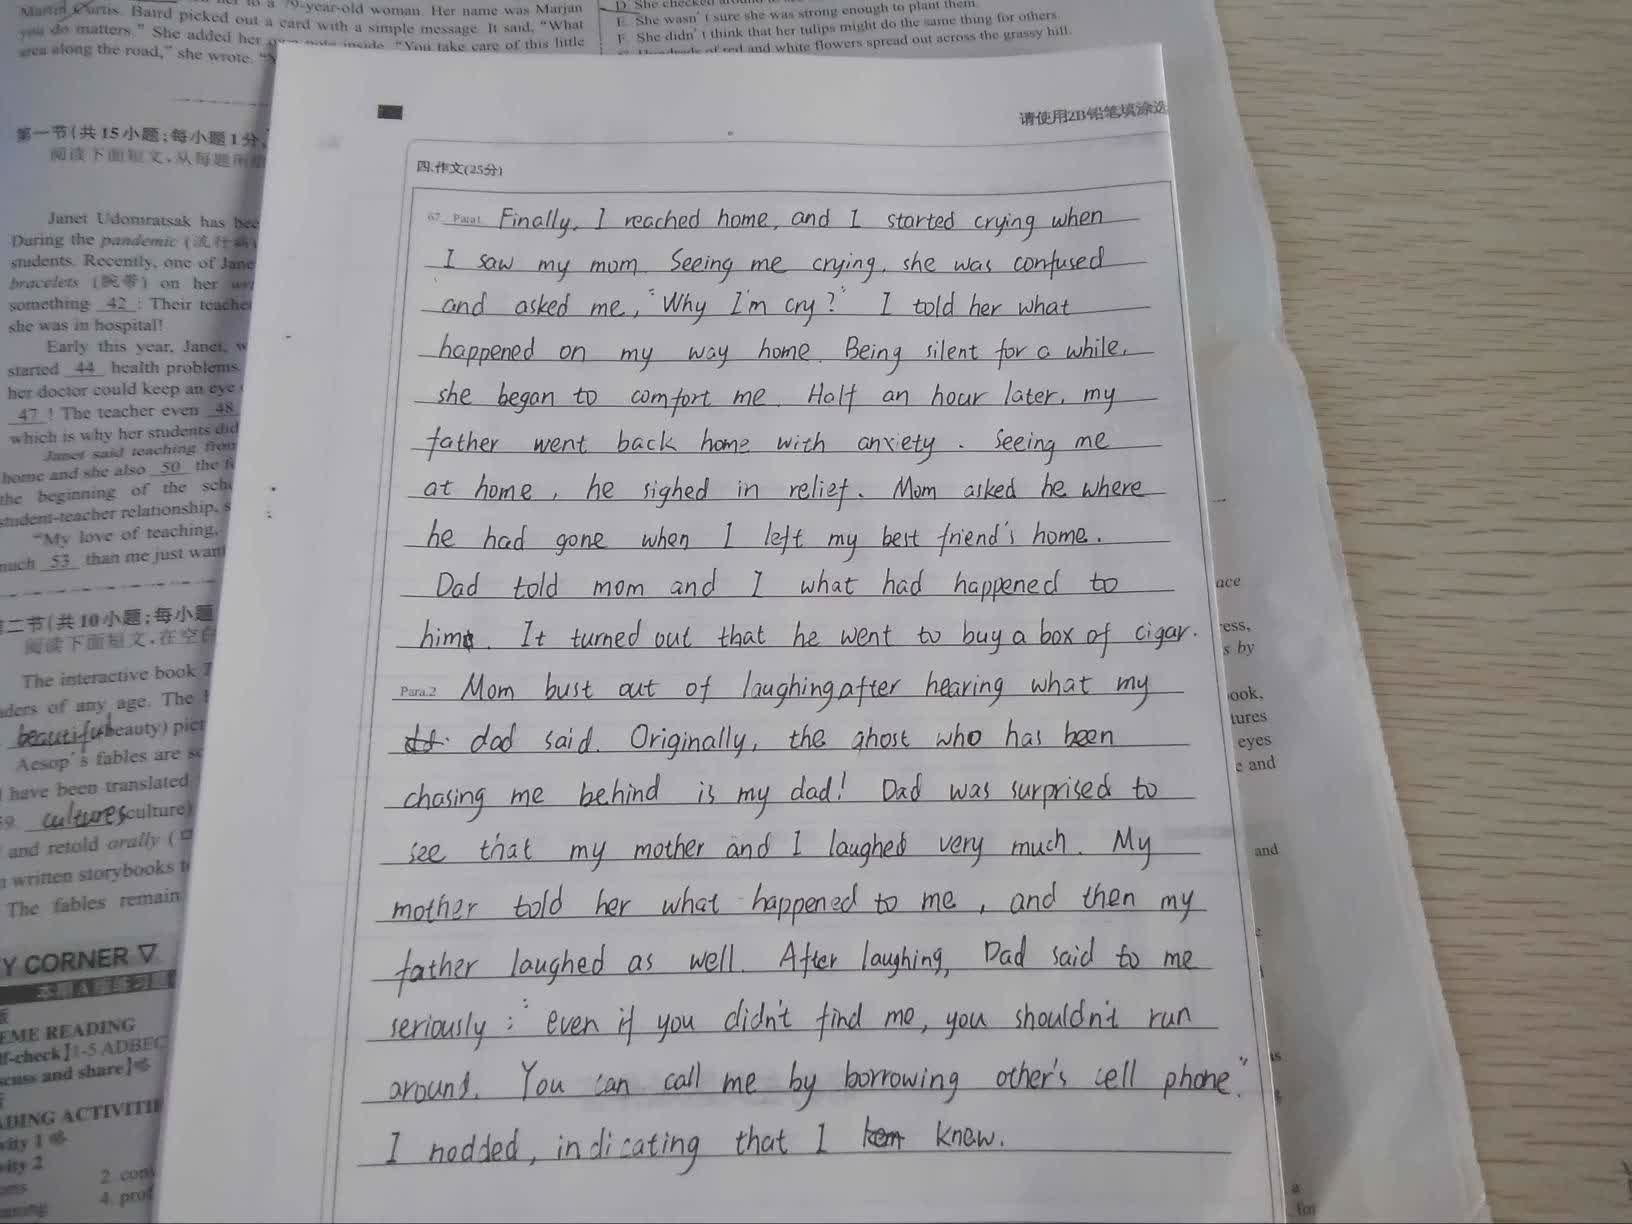 Martin Curtis. Baird picked out a card with a simple message. It said, "What
you do matters." She added her own note inside. "You take care of this little
area along the road," she wrote.
79-year-old woman. Her name was Marjan
E. She wasn't sure she was strong enough to plant them.
F. She didn't think that her tulips might do the same thing for others.
red and white flowers spread out across the grassy hill.
第一节(共15小题;每小题1分
阅读下面短文,从每题所
Janet Udomratsak has
During the pandemic (
students. Recently, one of
bracelets (腕带) on her
something 42 : Their teacher
she was in hospital!
Early this year, Janet,
started 44 health problems.
her doctor could keep an eye
47 ! The teacher even 48
which is why her students did
Janet said teaching from
home and she also 50 the
the beginning of the
student-teacher relationship,
"My love of teaching,
much 53 than me just want
二节(共10小题;每小题
阅读下面短文,在空白
The interactive book
of any age. The
beautiful beauty)
Aesop's fables are
have been translated
cultures culture)
and retold orally (
written storybooks
The fables remain
Y CORNER ▽
EME READING
1-5 ADBEC
cuss and share]
DING ACTIVITI
ity 1
ity 2
请使用2B铅笔填涂选
四.作文(25分)
67. Para1. Finally, I reached home, and I started crying when
I saw my mom. Seeing me crying, she was confused
and asked me, "Why I'm cry?" I told her what
happened on my way home. Being silent for a while,
she began to comfort me. Half an hour later, my
father went back home with anxiety. Seeing me
at home, he sighed in relief. Mom asked he where
he had gone when I left my best friend's home.
Dad told mom and I what had happened to
him. It turned out that he went to buy a box of cigar.
Para.2 Mom bust out of laughing after hearing what my
dad said. Originally, the ghost who has been
chasing me behind is my dad! Dad was surprised to
see that my mother and I laughed very much. My
mother told her what happened to me, and then my
father laughed as well. After laughing, Dad said to me
seriously: "even if you didn't find me, you shouldn't run
around. You can call me by borrowing other's cell phone."
I nodded, indicating that I knew.
ace
s by
ook,
tures
eyes
and
and